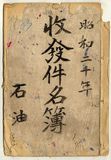 昭和三年
收發件名簿
石油